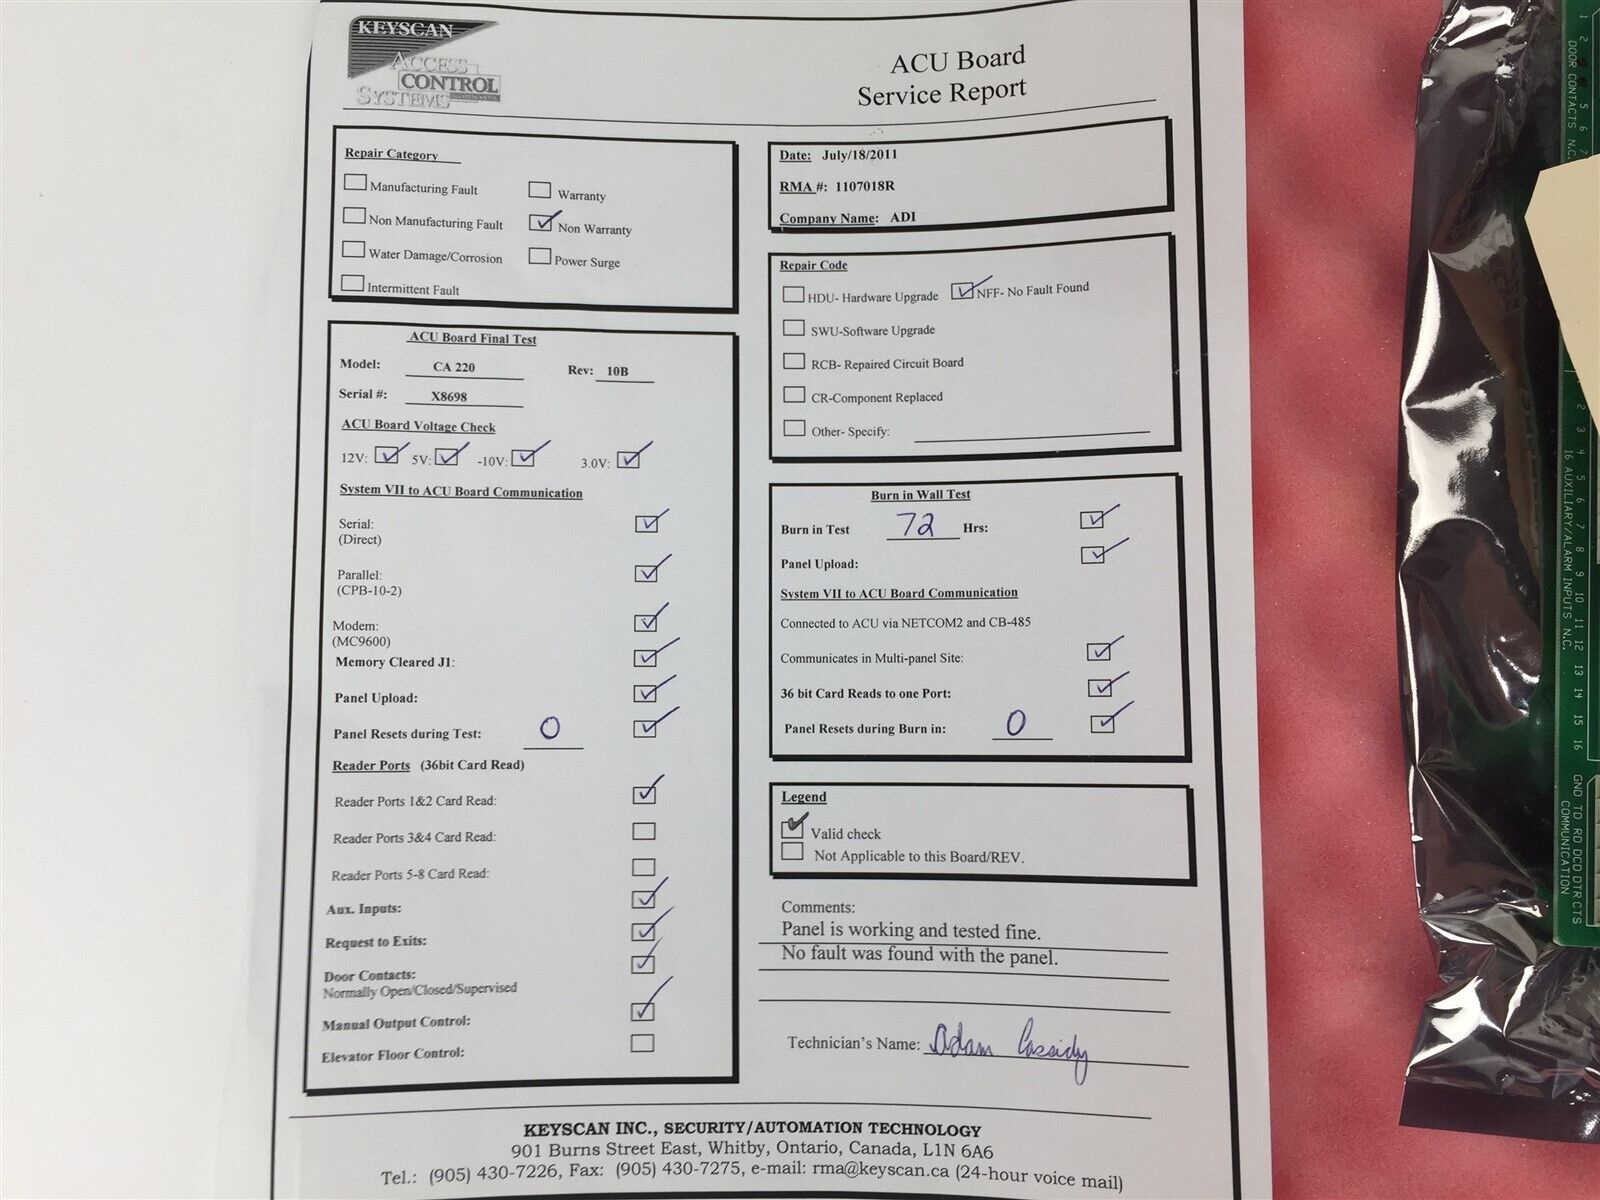 KEYSCAN
ACCESS
CONTROL
SYSTEMS
ACU Board
Service Report
Repair Category
Manufacturing Fault
Warranty
Non Manufacturing Fault
Non Warranty
Water Damage/Corrosion
Power Surge
Intermittent Fault
Date: July/18/2011
RMA #: 1107018R
Company Name: ADI
Repair Code
HDU- Hardware Upgrade
NFF- No Fault Found
SWU-Software Upgrade
RCB- Repaired Circuit Board
CR-Component Replaced
Other- Specify:
ACU Board Final Test
Model: CA 220 Rev: 10B
Serial #: X8698
ACU Board Voltage Check
12V: 5V: -10V: 3.0V:
System VII to ACU Board Communication
Serial:
(Direct)
Parallel:
(CPB-10-2)
Modem:
(MC9600)
Memory Cleared J1:
Panel Upload:
Panel Resets during Test: 0
Reader Ports (36bit Card Read)
Reader Ports 1&2 Card Read:
Reader Ports 3&4 Card Read:
Reader Ports 5-8 Card Read:
Aux. Inputs:
Request to Exits:
Door Contacts:
Normally Open/Closed/Supervised
Manual Output Control:
Elevator Floor Control:
Burn in Wall Test
Burn in Test 72 Hrs:
Panel Upload:
System VII to ACU Board Communication
Connected to ACU via NETCOM2 and CB-485
Communicates in Multi-panel Site:
36 bit Card Reads to one Port:
Panel Resets during Burn in: 0
Legend
Valid check
Not Applicable to this Board/REV.
Comments:
Panel is working and tested fine.
No fault was found with the panel.
Technician's Name: Adam Cassidy
KEYSCAN INC., SECURITY/AUTOMATION TECHNOLOGY
901 Burns Street East, Whitby, Ontario, Canada, L1N 6A6
Tel.: (905) 430-7226, Fax: (905) 430-7275, e-mail: rma@keyscan.ca (24-hour voice mail)
1 2 5 6 7
DOOR CONTACTS N.C.
2 3 4 5 6 7 8 9 10 11 12 13 14 15 16
16 AUXILIARY/ALARM INPUTS N.C.
GND TD RD DCD DTR CTS
COMMUNICATION